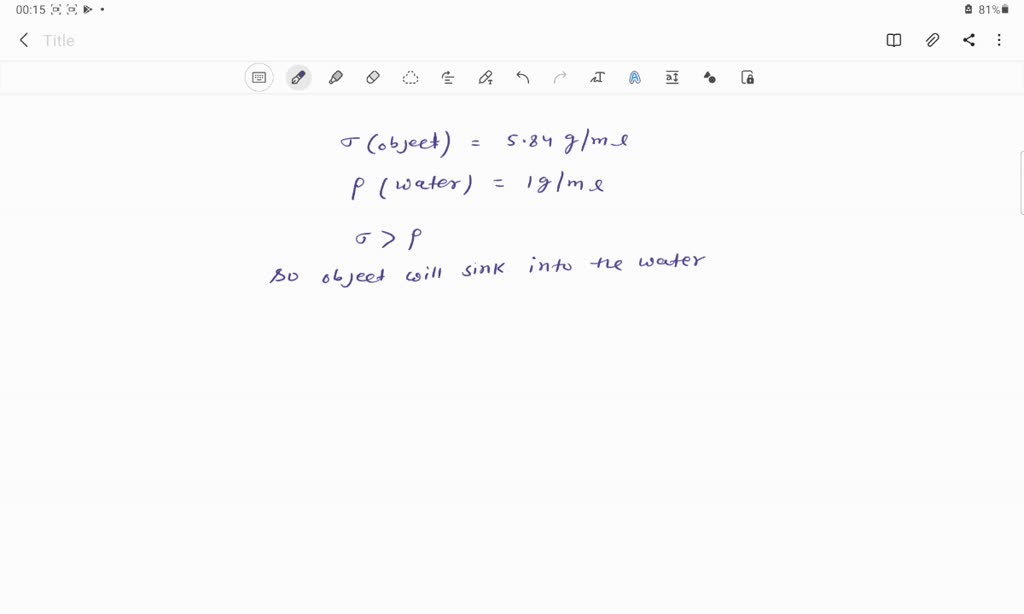 00:15 81%
Title
σ (object) = 5.84 g/ml
ρ (water) = 1g/ml
σ > ρ
so object will sink into the water